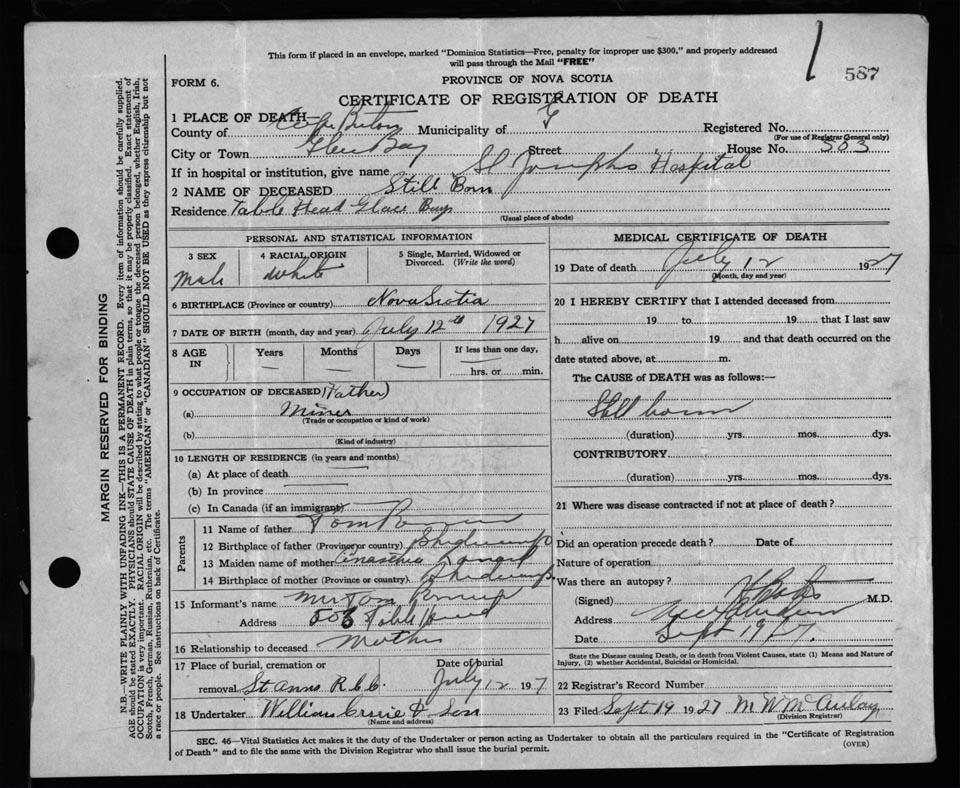 This form if placed in an envelope, marked "Dominion Statistics—Free, penalty for improper use $300," and properly addressed
will pass through the Mail "FREE"
587
FORM 6.
PROVINCE OF NOVA SCOTIA
CERTIFICATE OF REGISTRATION OF DEATH
1 PLACE OF DEATH—
County of Cape Breton Municipality of Registered No.
(For use of Registrar General only)
City or Town Glace Bay Street House No. 503
If in hospital or institution, give name St Josephs Hospital
2 NAME OF DECEASED Still Born
Residence Table Head Glace Bay
(Usual place of abode)
PERSONAL AND STATISTICAL INFORMATION
3 SEX 4 RACIAL ORIGIN 5 Single, Married, Widowed or
Divorced. (Write the word)
Male White
6 BIRTHPLACE (Province or country) Nova Scotia
7 DATE OF BIRTH (month, day and year) July 12th 1927
8 AGE IN Years Months Days If less than one day,
— — — hrs. or min.
9 OCCUPATION OF DECEASED (Father)
(a) Miner
(Trade or occupation or kind of work)
(b)
(Kind of industry)
10 LENGTH OF RESIDENCE (in years and months)
(a) At place of death
(b) In province
(c) In Canada (if an immigrant)
Parents
11 Name of father Tom
12 Birthplace of father (Province or country)
13 Maiden name of mother
14 Birthplace of mother (Province or country)
15 Informant's name Mrs Tom
Address Table Head
16 Relationship to deceased Mother
17 Place of burial, cremation or Date of burial
removal St Anns R.C.C. July 12 1927
18 Undertaker William & Son
(Name and address)
MEDICAL CERTIFICATE OF DEATH
19 Date of death July 12 1927
(Month, day and year)
20 I HEREBY CERTIFY that I attended deceased from
19 to 19 that I last saw
h alive on 19 and that death occurred on the
date stated above, at m.
The CAUSE of DEATH was as follows:—
Still born
(duration) yrs. mos. dys.
CONTRIBUTORY
(duration) yrs. mos. dys.
21 Where was disease contracted if not at place of death?
Did an operation precede death? Date of
Nature of operation
Was there an autopsy?
(Signed) M.D.
Address
Date Sept 1927.
State the Disease causing Death, or in death from Violent Causes, state (1) Means and Nature of
Injury, (2) whether Accidental, Suicidal or Homicidal.
22 Registrar's Record Number
23 Filed Sept 19 1927 M W McAulay
(Division Registrar)
SEC. 46—Vital Statistics Act makes it the duty of the Undertaker or person acting as Undertaker to obtain all the particulars required in the "Certificate of Registration
of Death" and to file the same with the Division Registrar who shall issue the burial permit.
(OVER)
MARGIN RESERVED FOR BINDING
N.B.—WRITE PLAINLY WITH UNFADING INK—THIS IS A PERMANENT RECORD. Every item of information should be carefully supplied.
AGE should be stated EXACTLY. PHYSICIANS should STATE CAUSE OF DEATH in plain terms, so that it may be properly classified. Exact statement of
OCCUPATION is very important. RACIAL ORIGIN will be described by stating to what people or tongue the deceased person belonged, whether English, Irish,
Scotch, French, German, Russian, Ruthenian, etc. The terms "AMERICAN" or "CANADIAN" SHOULD NOT BE USED as they express citizenship but not
a race or people. See instructions on back of Certificate.